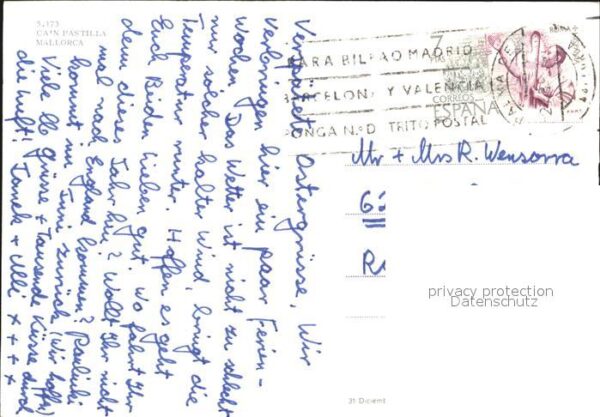 5.173
CA'N PASTILLA
MALLORCA
Verspätet Ostergrüsse. Wir
verbringen hier ein paar Ferien-
wochen. Das Wetter ist nicht zu schlecht
nur solcher kalter Wind, bringt die
Temperatur runter. Hoffen es geht
Euch Beiden lieben gut. Wo fahrt Ihr
denn dieses Jahr hin? Wollt Ihr nicht
mal nach England kommen?
kommt im Juni zurück (Wir hoffen)
Viele lb grüsse + Tausende Küsse durch
die Luft! Janek + Ulli x x x
7
PARA BILBAO MADRID
BARCELONA Y VALENCIA
PONGA N.º DISTRITO POSTAL
CORREOS
ESPAÑA
PALMA DE
Mr + Mrs R. Wensorra
6
R
privacy protection
Datenschutz
31 Diciemb